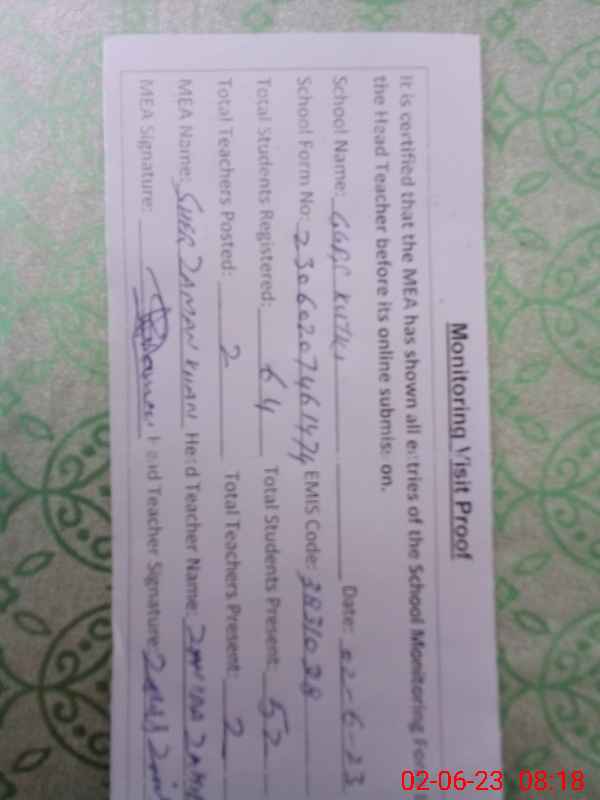 Monitoring Visit Proof
It is certified that the MEA has shown all entries of the School Monitoring
the Head Teacher before its online submission.
School Name: GGPS Date: 02-6-23
School Form No: 23060207461474 EMIS Code: 3831038
Total Students Registered: 64 Total Students Present: 52
Total Teachers Posted: 2 Total Teachers Present: 2
MEA Name: SHER ZAMAN KHAN Head Teacher Name:
MEA Signature: Head Teacher Signature:
02-06-23 08:18